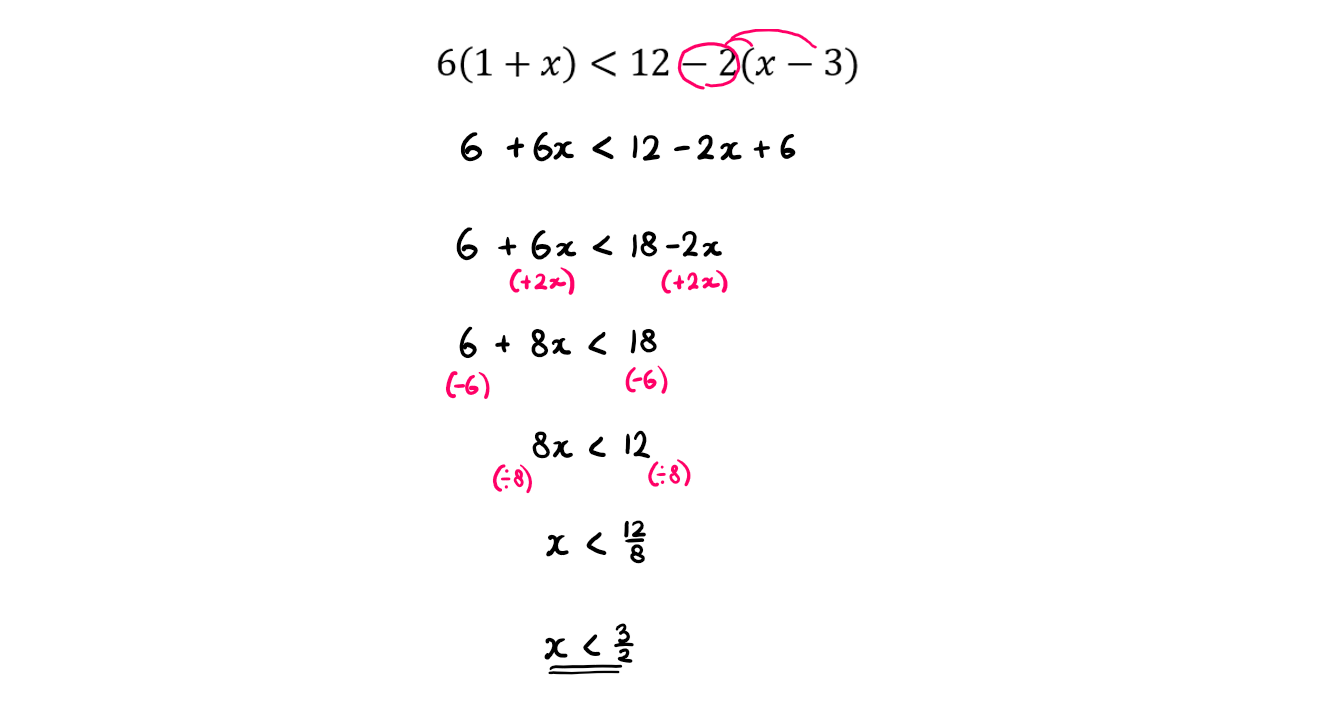 6(1 + x) < 12 − 2(x − 3)
6 + 6x < 12 - 2x + 6
6 + 6x < 18 - 2x
(+2x) (+2x)
6 + 8x < 18
(-6) (-6)
8x < 12
(÷8) (÷8)
x < 12/8
x < 3/2